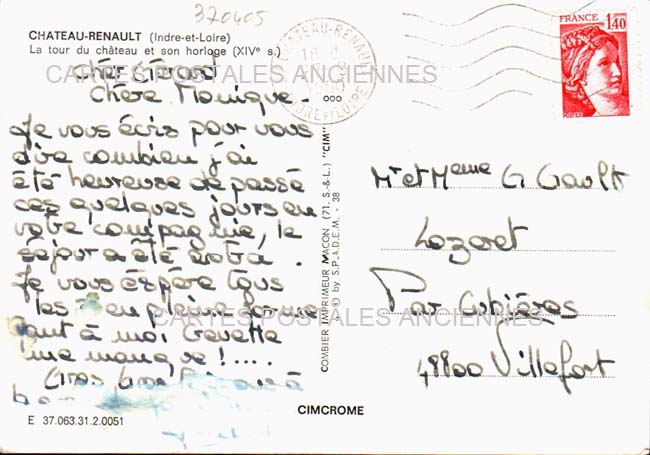 370405
CHATEAU-RENAULT (Indre-et-Loire)
La tour du château et son horloge (XIVe s.)
CARTES POSTALES ANCIENNES
Cher Gérard
Chère Monique.
Je vous écris pour vous
dire combien j'ai
été heureuse de passé
ces quelques jours en
votre compagnie, le
séjour a été
Je vous espère tous
les en pleine forme
à moi
me manque !....
Gros
CARTES POSTALES ANCIENNES
E 37.063.31.2.0051
CHATEAU-RENAULT
INDRE ET LOIRE
FRANCE
1,40
ooo
COMBIER IMPRIMEUR MACON (71. S.-&-L.) "CIM"
© by S.P.A.D.E.M. - 38
CIMCROME
Mr et Meme G Gault
Lozeret
Par Cubières
48800 Villefort